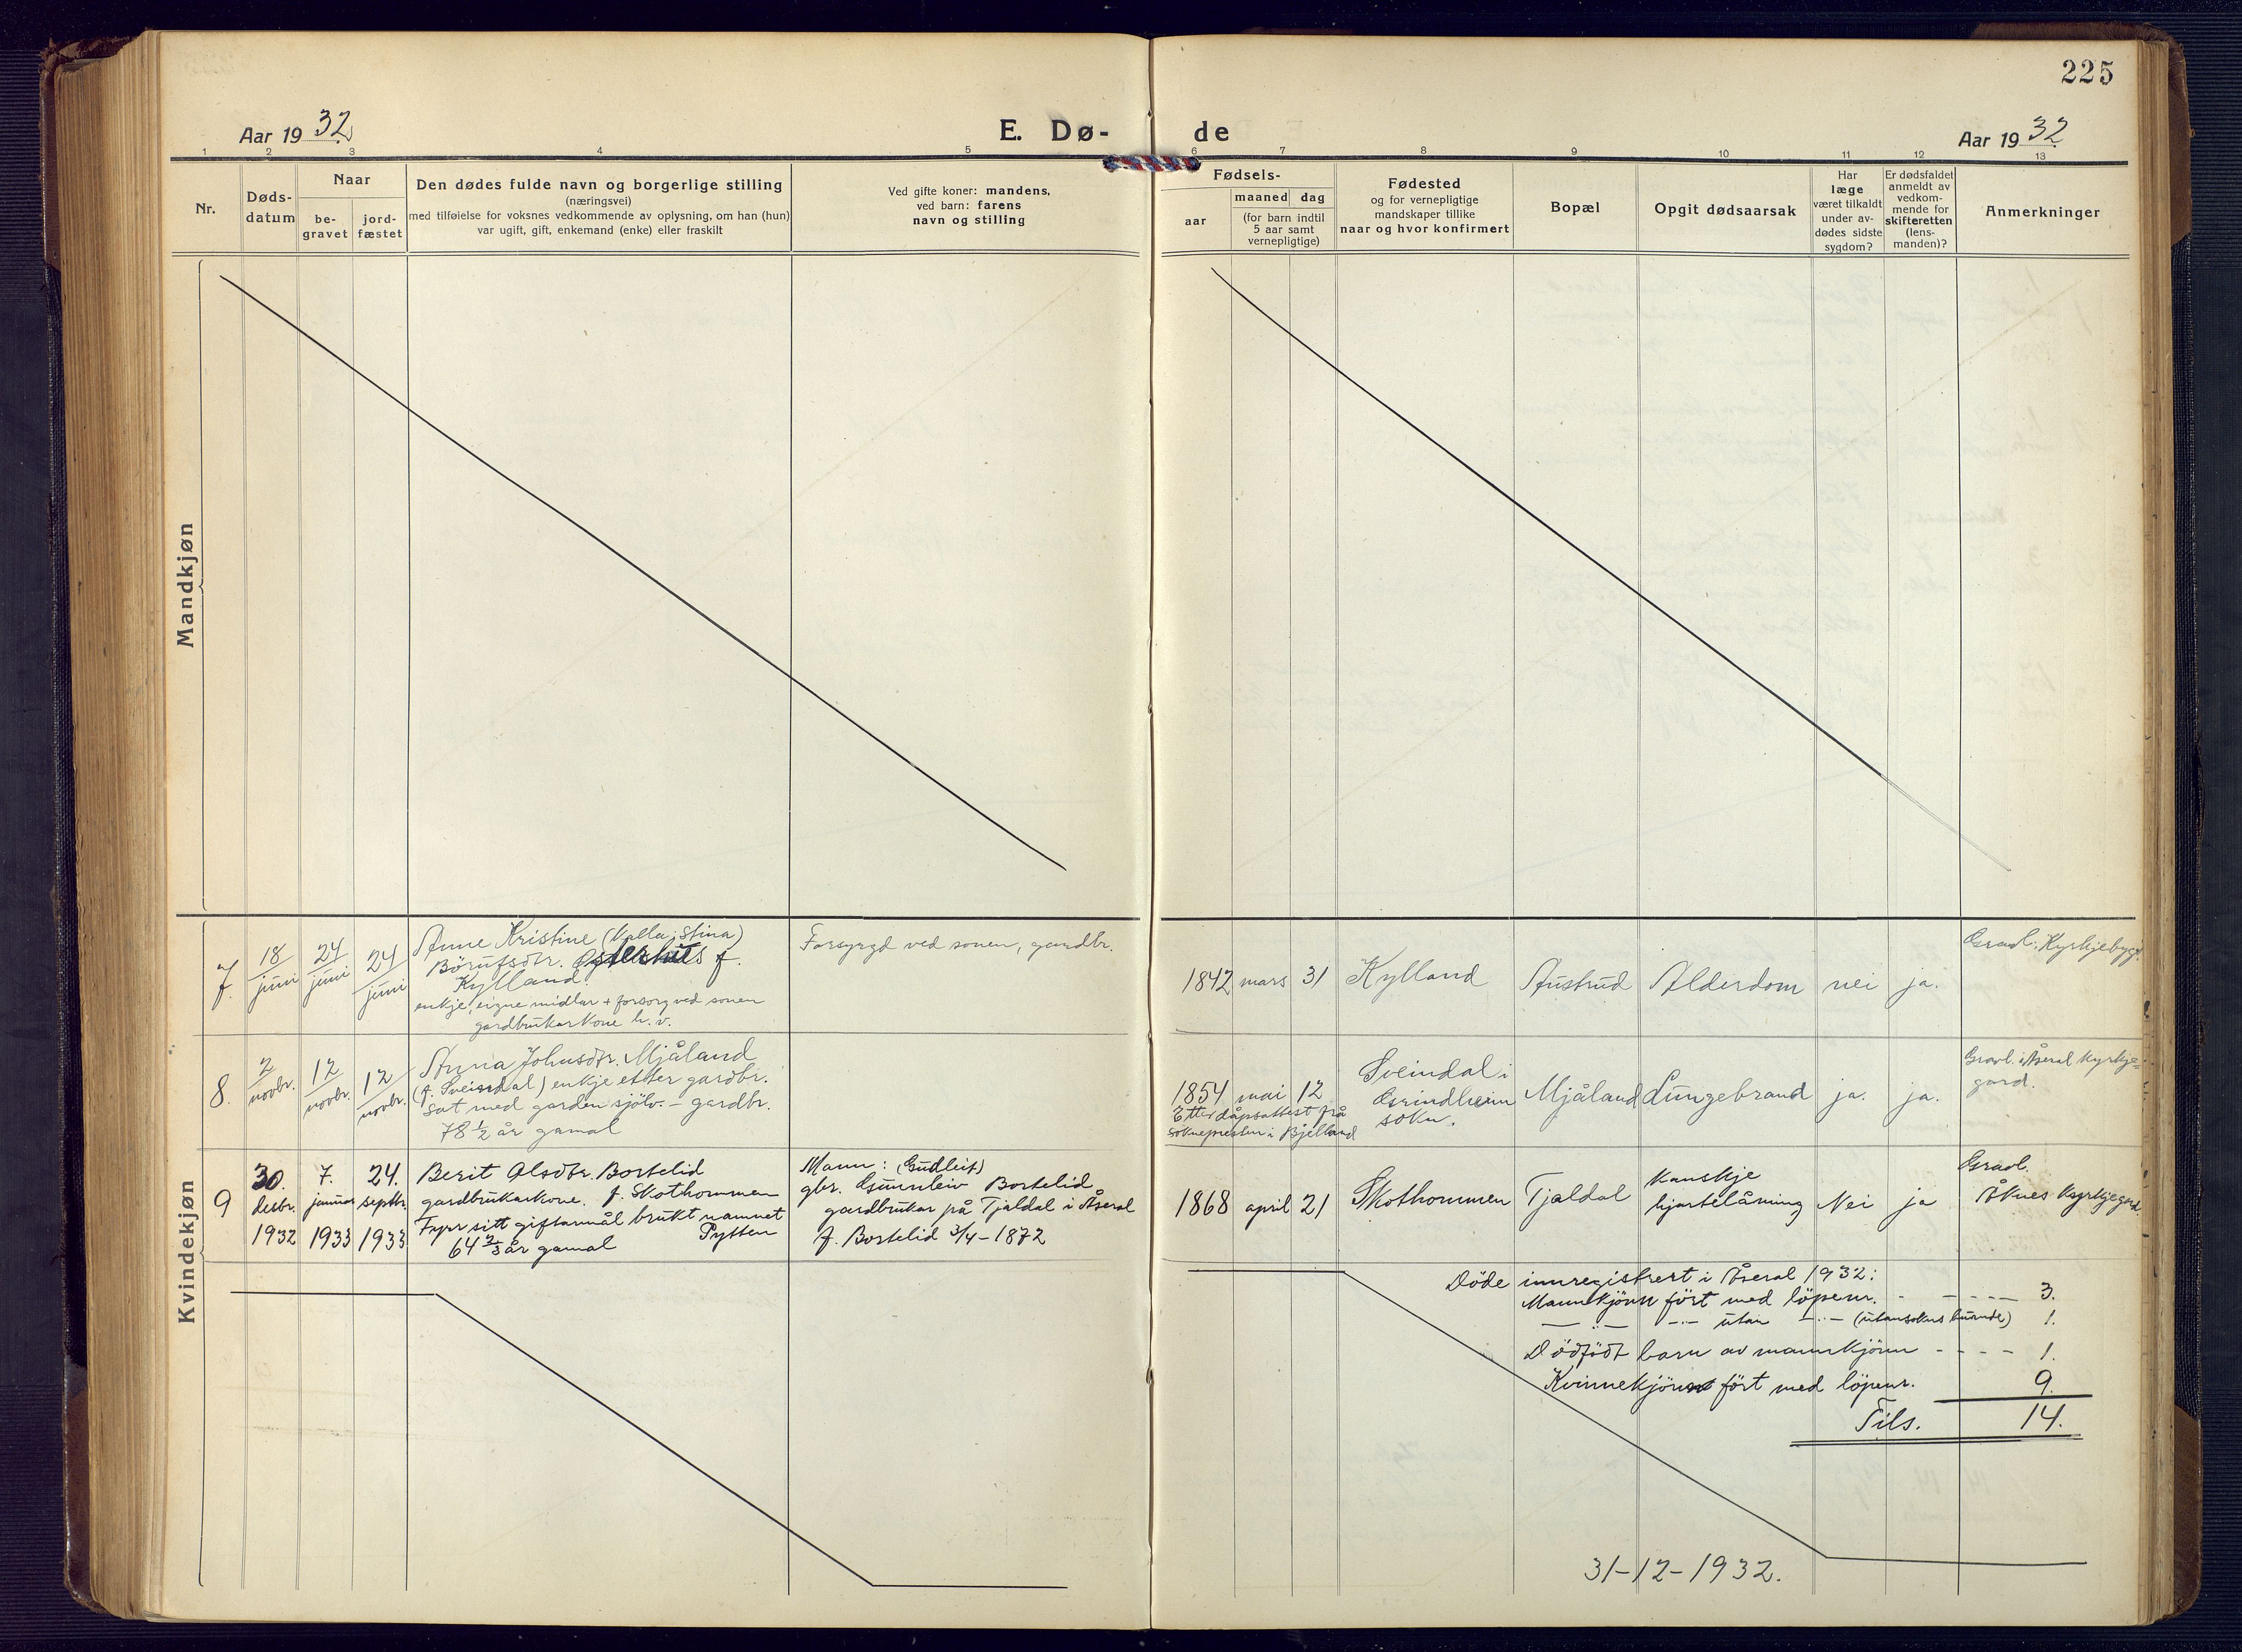 225
Aar 1932
E. Dø-
de
Aar 1932
1 2 3 4 5 6 7 8 9 10 11 12 13
Nr.
Døds-
datum
Naar
be-
gravet
jord-
fæstet
Den dødes fulde navn og borgerlige stilling
(næringsvei)
med tilføielse for voksnes vedkommende av oplysning, om han (hun)
var ugift, gift, enkemand (enke) eller fraskilt
Ved gifte koner: mandens,
ved barn: farens
navn og stilling
Fødsels-
aar
maaned dag
(for barn indtil
5 aar samt
vernepligtige)
Fødested
og for vernepligtige
mandskaper tillike
naar og hvor konfirmert
Bopæl
Opgit dødsaarsak
Har
læge
været tilkaldt
under av-
dødes sidste
sygdom?
Er dødsfaldet
anmeldt av
vedkom-
mende for
skifteretten
(lens-
manden)?
Anmerkninger
Mandkjøn
Kvindekjøn
7.
18/juni
24/juni
24/juni
Anne Kristine (Stina)
Børufsdtr. f.
Kylland.
enkje, eigne midlar + forsorg ved sonen
gardbrukarkone h. v.
Forsyrgd ved sonen, gardbr.
1842 mars 31
Kylland
Austrud
Alderdom
nei
ja.
Gravl. Kyrkjebygd.
8.
2/novbr.
12/novbr.
12/novbr.
Anna Johnsdtr. Mjåland
(f. Sveindal) enkje etter gardbr.
Sat med garden sjölv. - gardbr.
78 1/2 år gamal
1854 mai 12
Etter dåpsattest frå
soknepresten i Bjelland
Sveindal i
Grindheim
sokn.
Mjåland
Lungebrand
ja.
ja.
Gravl. i Åseral kyrkje=
gard.
9
30.
desbr.
1932
7.
januar
1933
24.
septbr.
1933
Berit Olsdtr. Bortelid
gardbrukarkone. f. Skothommen
Fyrr sitt giftarmål brukt namnet
64 2/3 år gamal Pytten
Mann: (Gudleif)
gbr. Gunnleiv Bortelid
gardbrukar på Tjaldal i Åseral
f. Bortelid 3/4-1872
1868 april 21
Skothommen
Tjaldal
Kanskje
hjartelåming
Nei
ja
Gravl.
Åknes Kyrkjegard.
Döde innregistrert i Åseral 1932:
Mannkjönn fört med löpenr. - - - - - 3.
— " — - " - utan - " - (utansokns buande) 1.
Dödfödt barn av mannkjönn - - - - 1.
Kvinnekjönn fört med löpenr. 9.
Tils. 14.
31-12-1932.